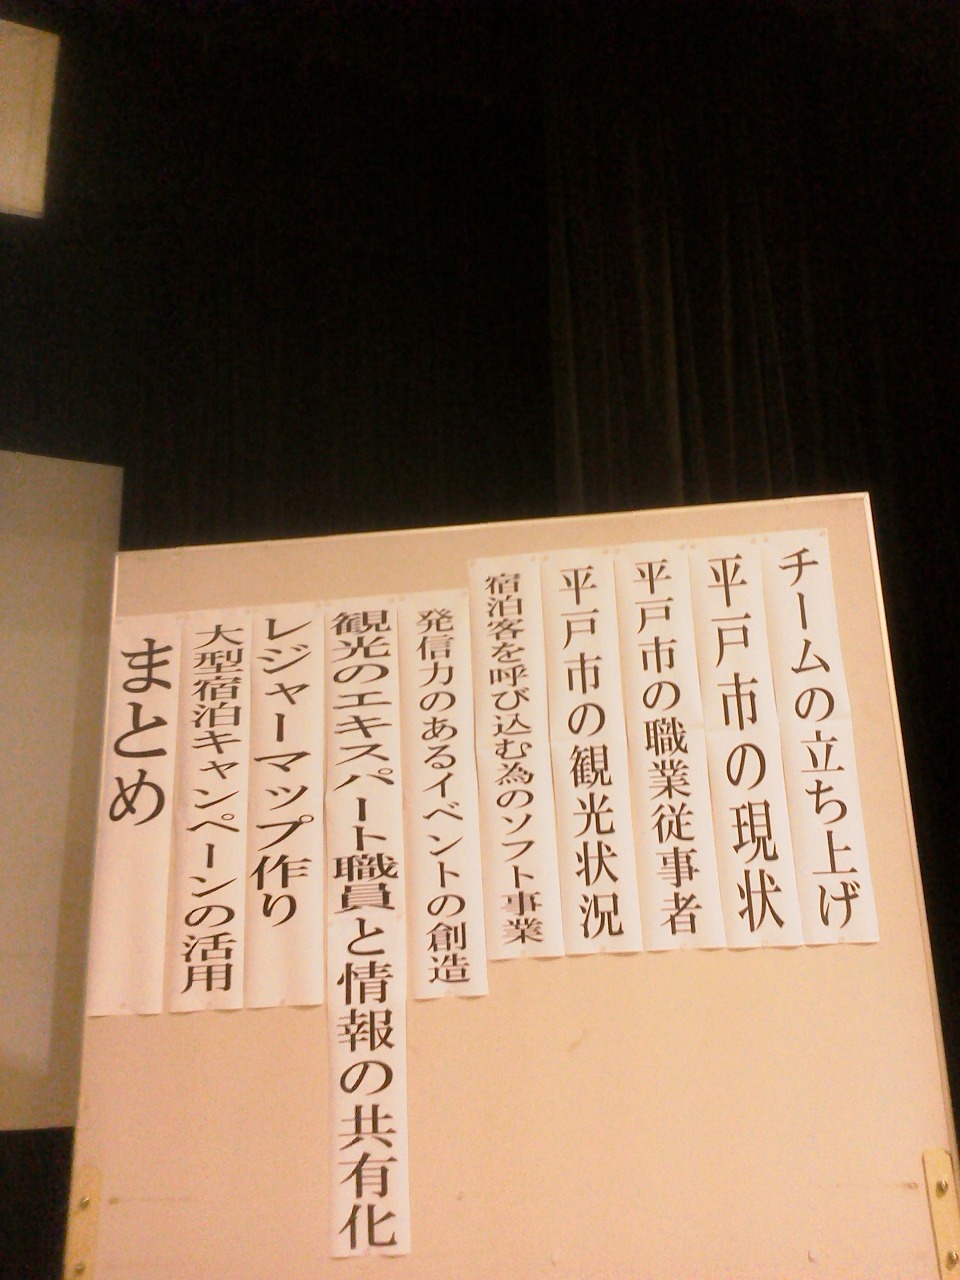 チームの立ち上げ
平戸市の現状
平戸市の職業従事者
平戸市の観光状況
宿泊客を呼び込む為のソフト事業
発信力のあるイベントの創造
観光のエキスパート職員と情報の共有化
レジャーマップ作り
大型宿泊キャンペーンの活用
まとめ